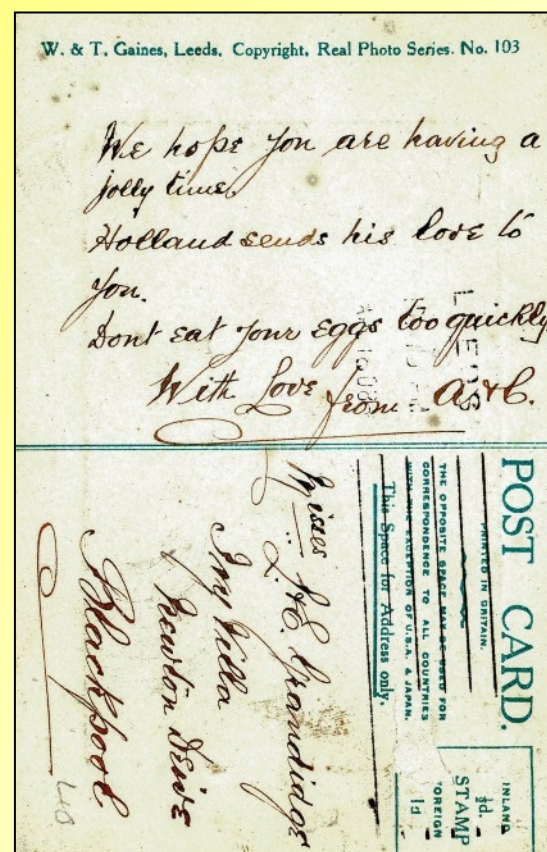 W. & T. Gaines, Leeds. Copyright. Real Photo Series. No. 103
We hope you are having a
jolly time.
Holland sends his love to
you.
Dont eat your eggs too quickly
With Love from A & C.
LEEDS
POST CARD.
PRINTED IN BRITAIN.
THE OPPOSITE SPACE MAY BE USED FOR
CORRESPONDENCE TO ALL COUNTRIES
WITH THE EXCEPTION OF U.S.A. & JAPAN.
This Space for Address only.
INLAND
½d.
STAMP
FOREIGN
1d
Misses L & E. Grandidge
Ivy Villa
Newton Drive
Blackpool